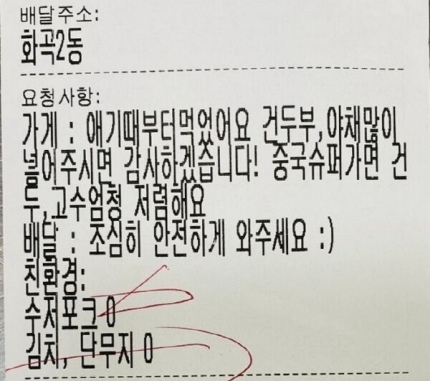 배달주소:
화곡2동
요청사항:
가게 : 애기때부터먹었어요 건두부,야채많이
널어주시면 감사하겠습니다! 중국슈퍼가면 건
두,고수엄청 저렴해요
배달 : 조심히 안전하게 와주세요 :)
친환경:
수저포크 0
김치, 단무지 0